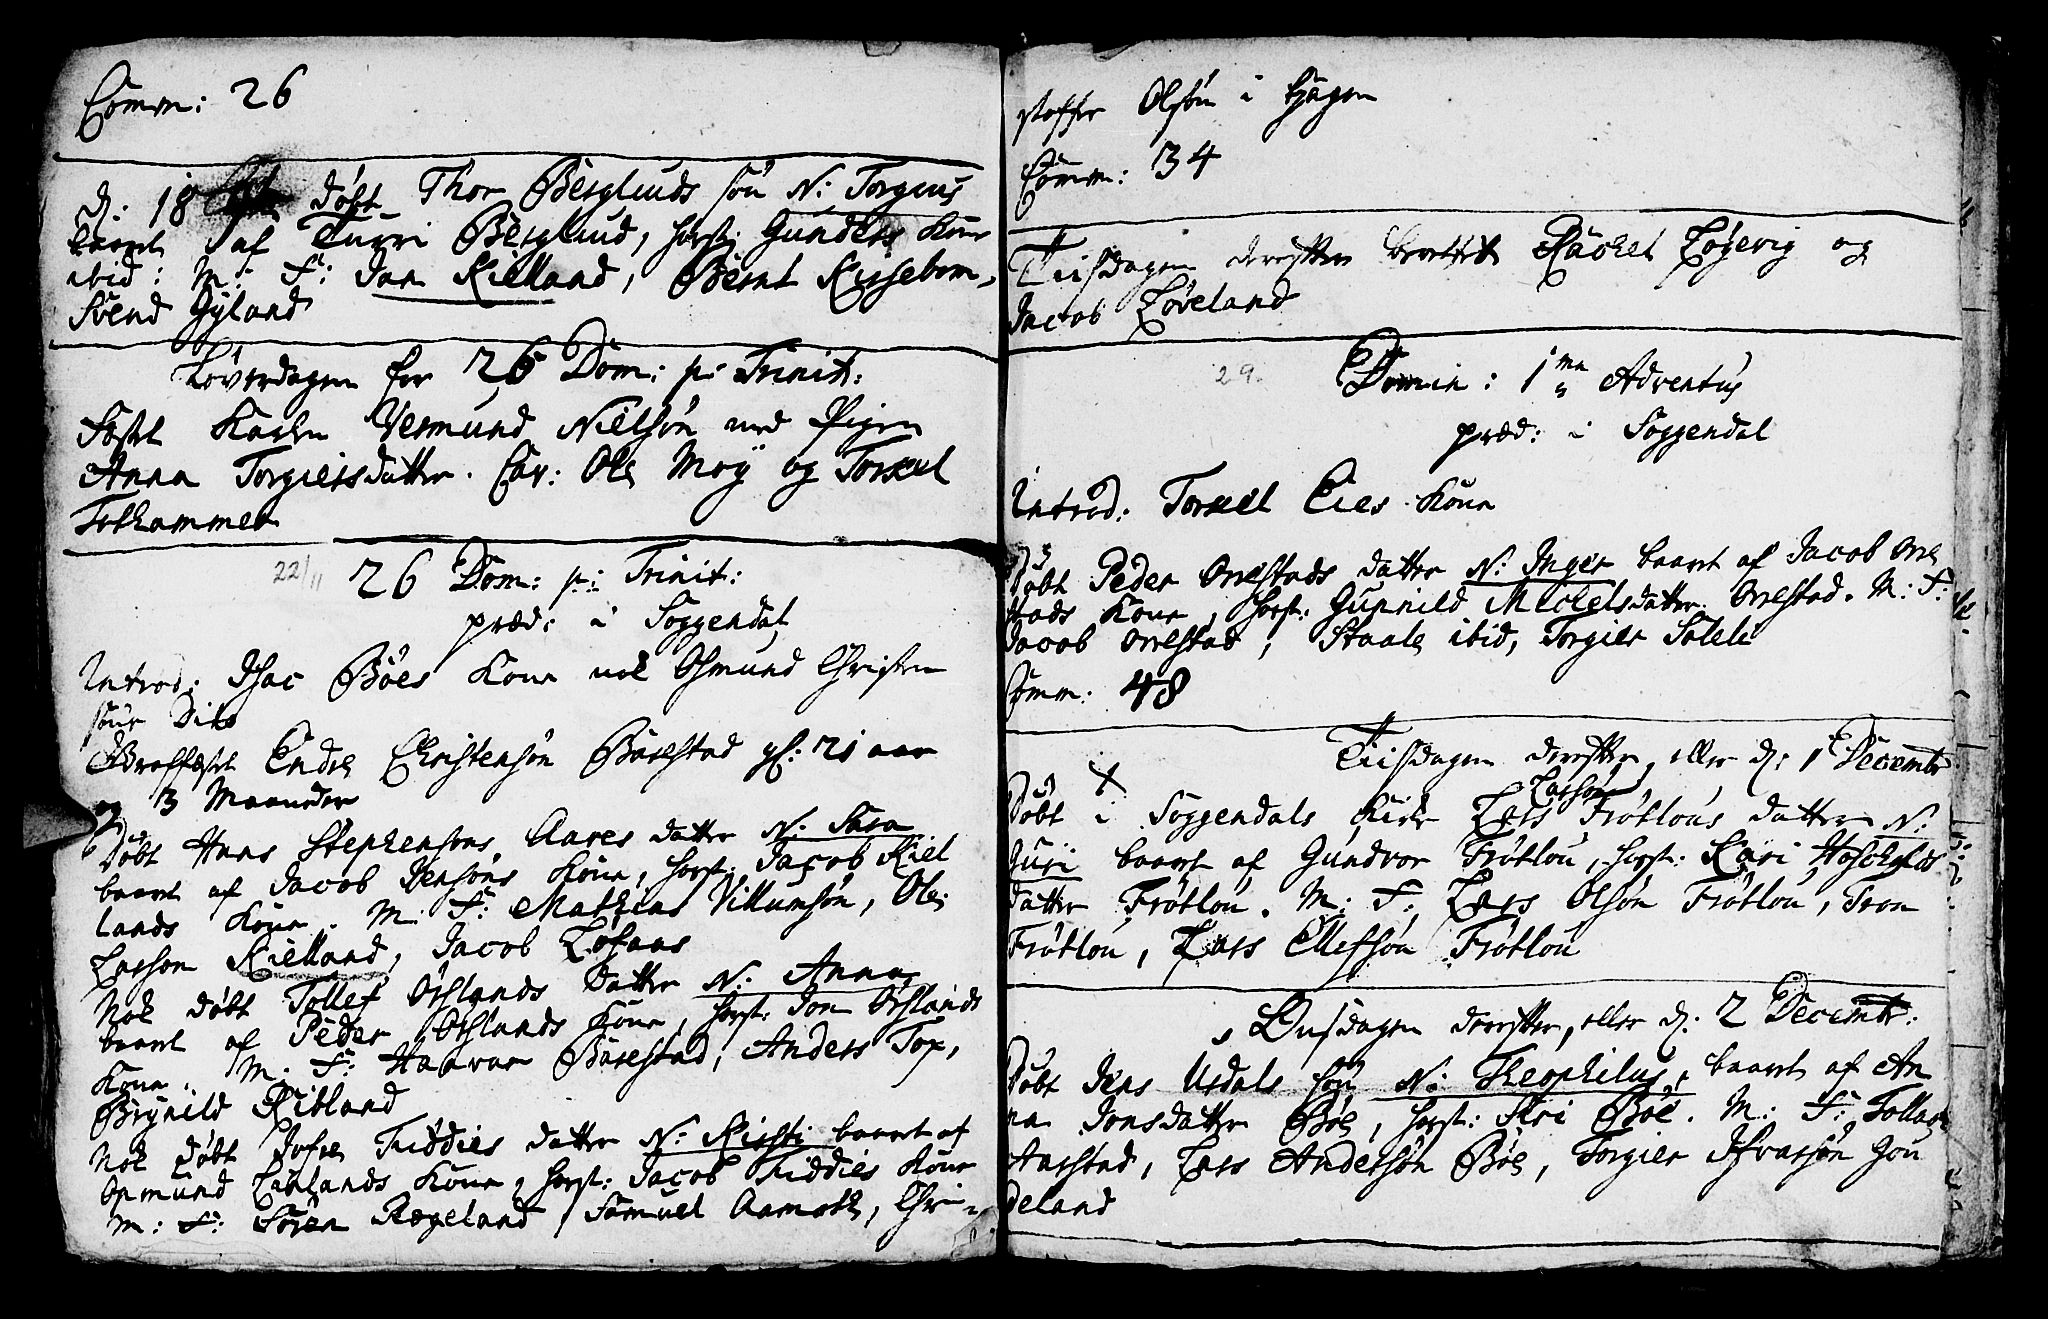 Comm: 26
d: 18 døbt Thor Berglunds søn N: Torgius
baaret af Turri Berglund, horst: Gunders Kone
ibid: M: F: Jan Kielland, Bernt Rissebom,
Svend Gyland
Løverdagen for 26 Dom: p: Trinit:
Fæstet Karlen Vermund Nielsøn med Pigen
Anna Torgiersdatter. Cav: Ole Moÿ og Torkel
Fotkammer
22/11 26 Dom: p: Trinit:
præd: i Soggendal
Introd: Isac Bøes Kone nok Osmund Christen
søns Dito
Troffæstet Endre Christensøn Barstad gl: 21 aar
og 3 Maaneder
Døbt Hans Stephensøns Aares datter N: Sara
baaret af Jacob Jensøns Kone, horst: Jacob Kiel
lands Kone. M: F: Mathias Villumsøn, Ole
Larsøn Kielland, Jacob Løfaas
Nok døbt Tollef Øislands datter N: Anna
baaret af Peder Øislands Kone, horst: Jon Øislands
Kone. M: F: Haavar Barstad, Anders Tox,
Brynild Ribland
Nok døbt Tofte Tuddies datter N: Kisti baaret af
Omund Lislands Kone, horst: Jacob Tuddies Kone
M: F: Søren Rægeland, Samuel Aamoth, Chri-
stoffer Olsøn i Hagen
Comm: 34
Tiisdagen derefter Rachel Løgevig og
Jacob Løveland
29. Domin: 1ma Adventus
præd: i Soggendal
Introd: Torkel Eies Kone
Døbt Peder Orrestads datter N: Inger baaret af Jacob Orre
stads Kone, horst: Gunnild Michelsdatter Orrestad. M: F:
Jacob Orrestad, Staale ibid, Torgier Solli
Comm: 48
Tiisdagen derefter, eller d: 1 Decembr
Døbt i Soggendals Kirke Lars Larsøn Frøtlous datter N:
Guri baaret af Gundvor Frøtlou, horst: Kari
datter Frøtlou. M: F: Lars Olsøn Frøtlou, Tron
Frøtlou, Lars Ellefsøn Frøtlou
Onsdagen derefter, eller d: 2 Decembr:
Døbt Jens Urdals søn N: Theophilus, baaret af An
na Jonsdatter Bøe, horst: Siri Bøe. M: F: Tollag
Aarstad, Lars Andersøn Bøe, Torgier Ifvarsøn Gou
deland